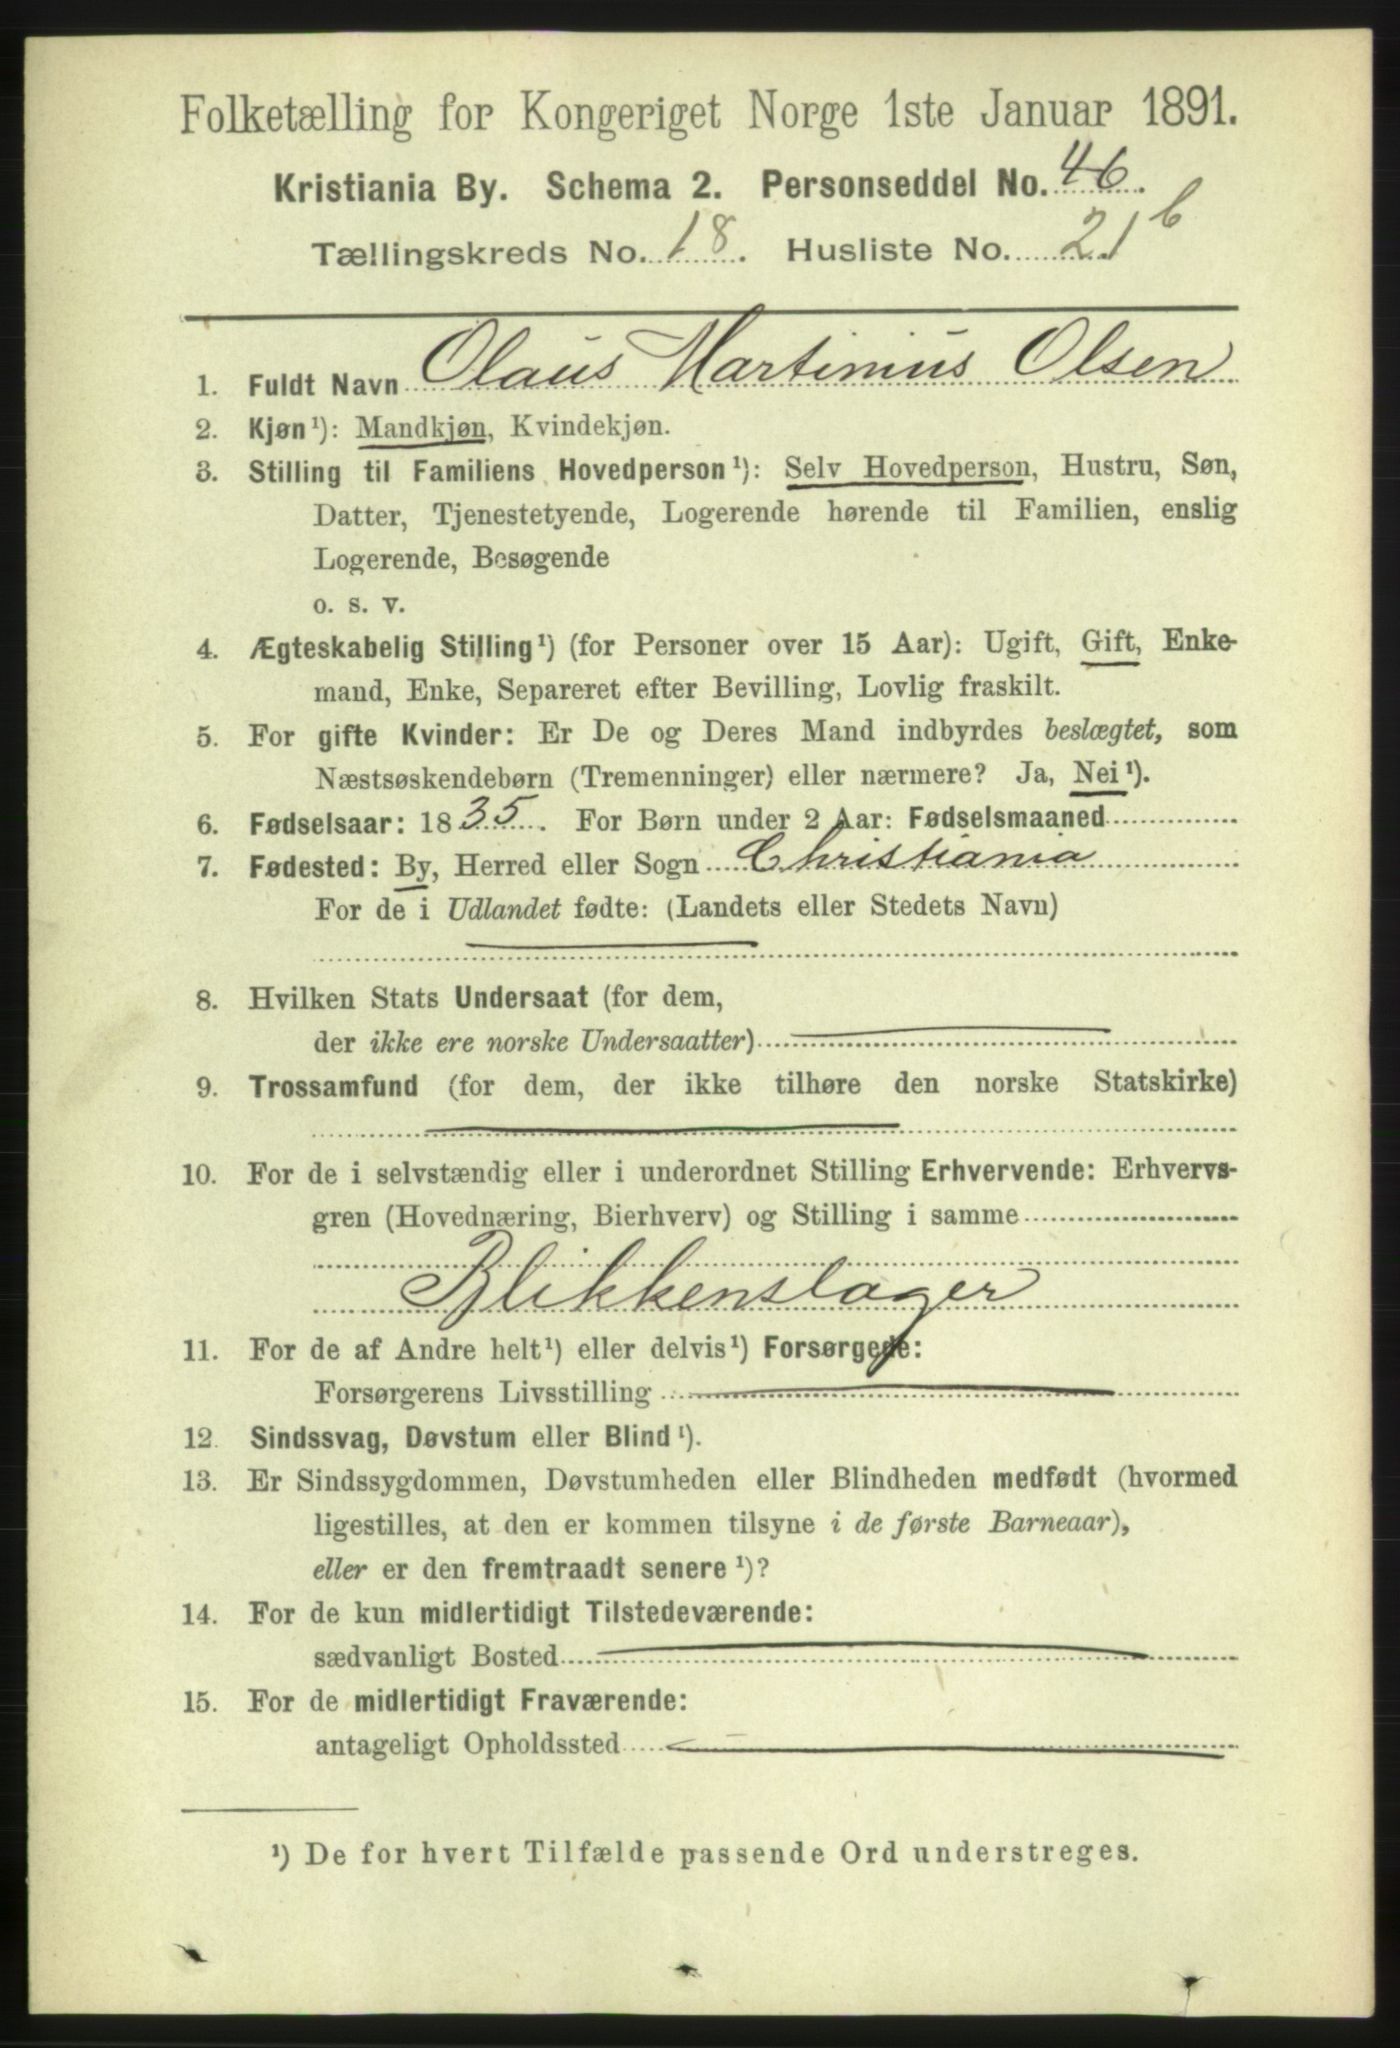 Folketælling for Kongeriget Norge 1ste Januar 1891.
Kristiania By. Schema 2. Personseddel No. 46.
Tællingskreds No. 18. Husliste No. 21 b
1. Fuldt Navn Olaus Martinius Olsen
2. Kjøn¹): Mandkjøn, Kvindekjøn.
3. Stilling til Familiens Hovedperson¹): Selv Hovedperson, Hustru, Søn,
Datter, Tjenestetyende, Logerende hørende til Familien, enslig
Logerende, Besøgende
o. s. v.
4. Ægteskabelig Stilling¹) (for Personer over 15 Aar): Ugift, Gift, Enke-
mand, Enke, Separeret efter Bevilling, Lovlig fraskilt.
5. For gifte Kvinder: Er De og Deres Mand indbyrdes beslægtet, som
Næstsøskendebørn (Tremenninger) eller nærmere? Ja, Nei¹).
6. Fødselsaar: 1835. For Børn under 2 Aar: Fødselsmaaned
7. Fødested: By, Herred eller Sogn Christiania
For de i Udlandet fødte: (Landets eller Stedets Navn)
8. Hvilken Stats Undersaat (for dem,
der ikke ere norske Undersaatter)
9. Trossamfund (for dem, der ikke tilhøre den norske Statskirke)
10. For de i selvstændig eller i underordnet Stilling Erhvervende: Erhvervs-
gren (Hovednæring, Bierhverv) og Stilling i samme
Blikkenslager
11. For de af Andre helt¹) eller delvis¹) Forsørgede:
Forsørgerens Livsstilling
12. Sindssvag, Døvstum eller Blind¹).
13. Er Sindssygdommen, Døvstumheden eller Blindheden medfødt (hvormed
ligestilles, at den er kommen tilsyne i de første Barneaar),
eller er den fremtraadt senere¹)?
14. For de kun midlertidigt Tilstedeværende:
sædvanligt Bosted
15. For de midlertidigt Fraværende:
antageligt Opholdssted
¹) De for hvert Tilfælde passende Ord understreges.